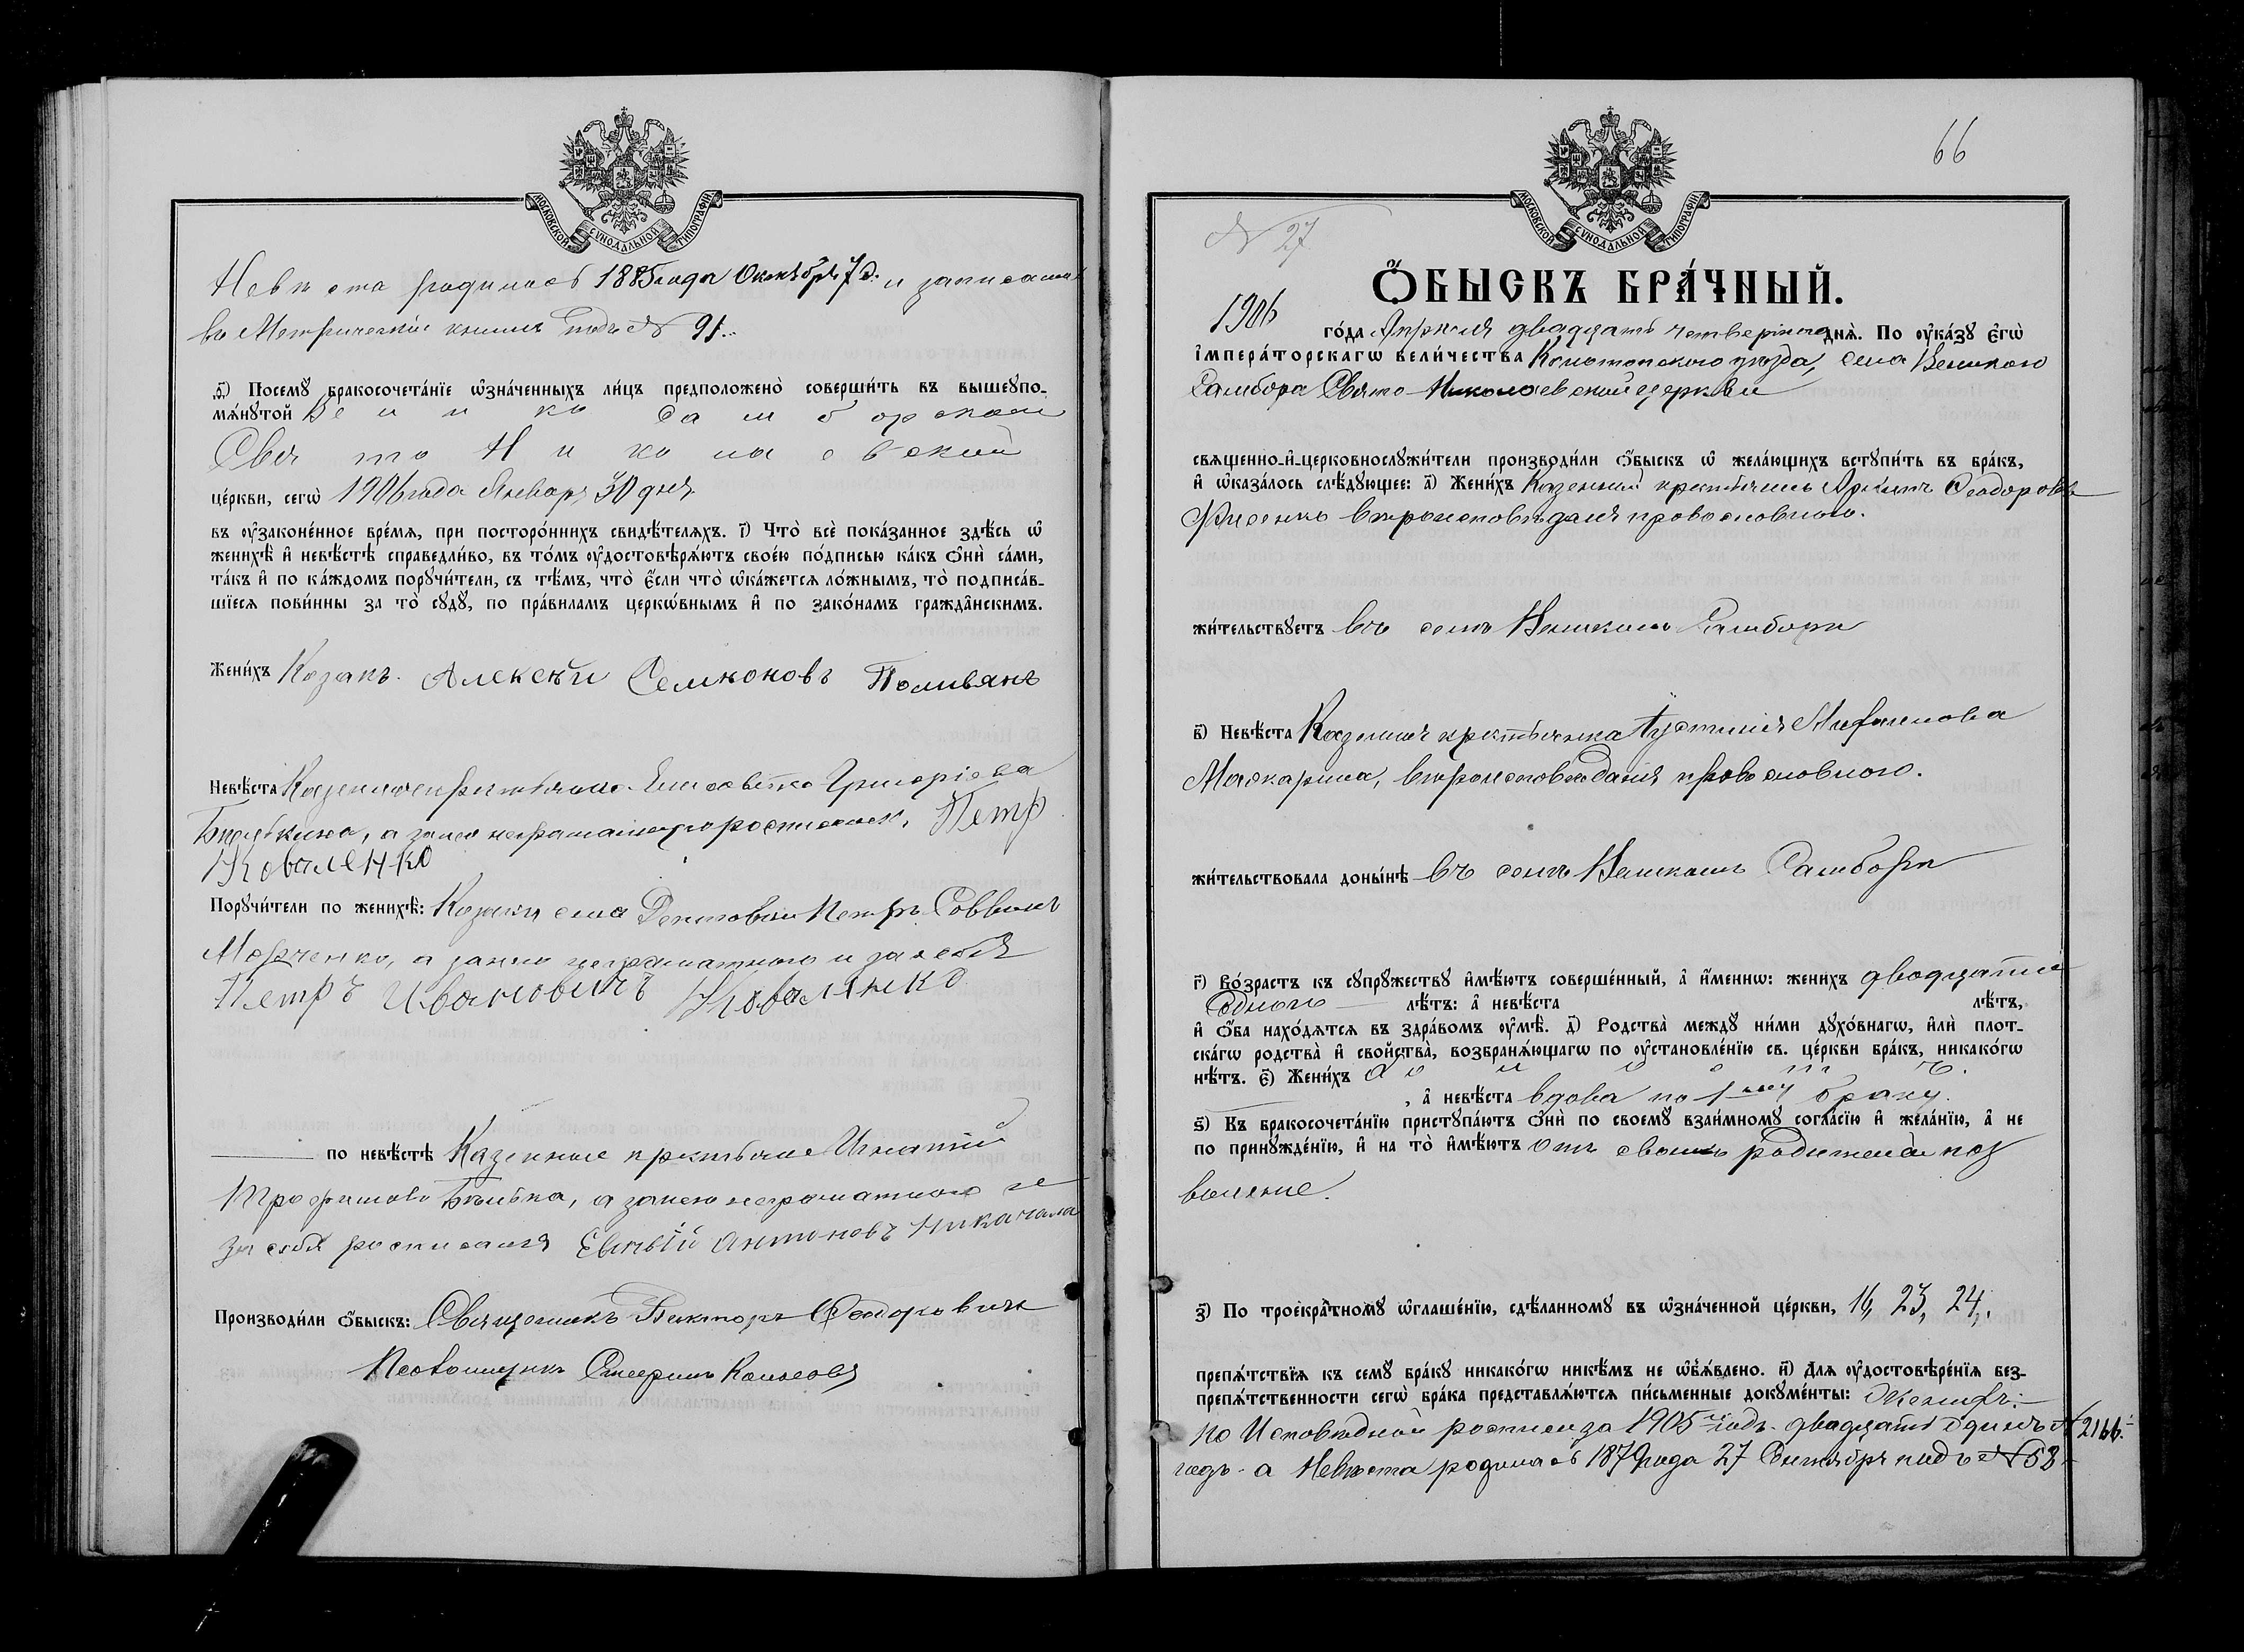 МОСКОВСКОЙ СУНОДАЛЬНОЙ ТИПОГРАФІИ.
Невѣста родилась 1885 года Октября 7 д. и записана
въ Метрической книгѣ подъ № 91.
д҃) Посемꙋ бракосочета́нїе ѡ҆зна́ченныхъ ли́цъ предположено̀ соверши́ть въ вышеꙋпо-
мѧ́нꙋтой Велико Самборской
Свято Николаевской
це́ркви, сегѡ̀ 1906 года Января 30 дня
въ ꙋ҆законе́нное вре́мѧ, при посторо́ннихъ свидѣ́телѧхъ. і҃) Что̀ всѐ пока́занное здѣ́сь ѡ҆
женихѣ̀ и҆ невѣ́стѣ справедли́во, въ то́мъ ꙋ҆достовѣрѧ́ютъ свое́ю по́дписью ка́къ ѻ҆нѝ са́ми,
та́къ и҆ по ка́ждомъ порꙋчи́тели, съ тѣ́мъ, что̀ є҆́сли что̀ ѡ҆ка́жетсѧ ло́жнымъ, то̀ подписа́в-
шїесѧ пови́нны за то̀ сꙋдꙋ̀, по пра́виламъ церкѡ́внымъ и҆ по зако́намъ гражда̑нскимъ.
Жени́хъ Козакъ Алексѣй Семіоновъ Поливянъ
Невѣ́ста Казенная крестьянка Елисавета Григоріева
а за нея неграмотную росписался, Петр
Коваленко
Порꙋчи́тели по женихѣ̀: Козаки села Петръ Саввинъ
Марченко, а за него неграмотнаго и за себя
Петръ Ивановичъ Коваленко
по невѣ́стѣ Казенные крестьяне Игнатій
Трофимовъ Бѣлѣка, а за него неграмотного и
за себя росписался Евсѣвій Антоновъ
Производи́ли ѻ҆́быскъ: Священникъ Викторъ Ѳеодоровичъ
Псаломщикъ
66
МОСКОВСКОЙ СУНОДАЛЬНОЙ ТИПОГРАФІИ.
№ 27
Ѻ҆́БЫСКЪ БРА́ЧНЫЙ.
1906 го́да Апрѣля двадцать четвертого днѧ̀. По ꙋ҆ка́зꙋ Є҆гѡ̀
І҆мпера́торскагѡ вели́чества Конотопского уѣзда, села Великого
Самбора Свято-Николаевской церкви
свѧще́нно-и҆-церковнослꙋжи́тели производи́ли ѻ҆́быскъ ѡ҆ жела́ющихъ встꙋпи́ть въ бра́къ,
и҆ ѡ҆каза́лось слѣ́дꙋющее: а҃) Жени́хъ Казенный крестьянинъ Ѳеодоровъ
вѣроисповѣданія православного.
жи́тельствꙋетъ въ селѣ Великомъ Самборѣ
в҃) Невѣ́ста Казенная крестьянка Іустинія
вѣроисповѣданія православного.
жи́тельствовала доны́нѣ въ селѣ Великомъ Самборѣ
г҃) Во́зрастъ къ сꙋпрꙋ́жествꙋ и҆мѣ́ютъ соверше́нный, а҆ и҆́меннѡ: жени́хъ двадцати
одного лѣ́тъ: а҆ невѣ́ста лѣ́тъ,
и҆ ѻ҆́ба нахо́дѧтсѧ въ здра́вомъ ꙋ҆мѣ̀. д҃) Родства̀ междꙋ ни́ми дꙋхо́внагѡ, и҆лѝ плот-
ска́гѡ родства̀ и҆ свойства̀, возбранѧ́ющагѡ по ꙋ҆становле́нїю св. це́ркви бра́къ, никако́гѡ
нѣ́тъ. є҃) Жени́хъ
, а҆ невѣ́ста вдова по 1му браку.
ѕ҃) Къ бракосочета́нїю пристꙋпа́ютъ ѻ҆нѝ по своемꙋ̀ взаи́мномꙋ согла́сїю и҆ жела́нїю, а҆ не
по принꙋжде́нїю, и҆ на то̀ и҆мѣ́ютъ отъ своихъ родителей поз
воленіе.
з҃) По троекра́тномꙋ ѡ҆глаше́нїю, сдѣ́ланномꙋ въ ѡ҆зна́ченной це́ркви, 16, 23, 24,
препѧ́тствїѧ къ семꙋ̀ бра́кꙋ никако́гѡ никѣ́мъ не ѡ҆б̾ѧ́влено. и҃) Для ꙋ҆достовѣре́нїѧ без-
препѧ́тственности сегѡ̀ бра́ка представлѧ́ютсѧ пи́сьменные докꙋме́нты: Женихъ
по Исповѣдной росписи за 1905 годъ двадцать одинъ № 2166
годъ а Невѣста родилась 1879 года 27 Сентября подъ № 58